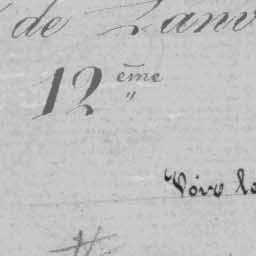 de Janv
12ème
"
Voir la